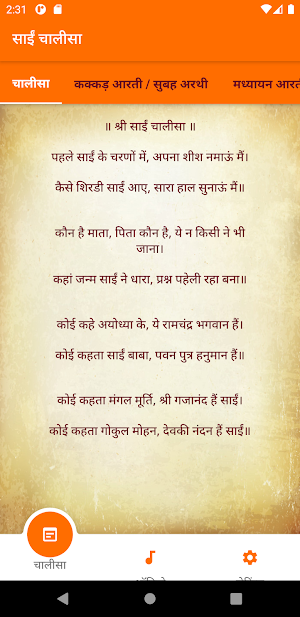 2:31
साईं चालीसा
चालीसा
कक्कड़ आरती / सुबह अरथी
मध्यायन आरत
॥ श्री साईं चालीसा ॥
पहले साईं के चरणों में, अपना शीश नमाऊं मैं।
कैसे शिरडी साईं आए, सारा हाल सुनाऊं मैं॥
कौन है माता, पिता कौन है, ये न किसी ने भी
जाना।
कहां जन्म साईं ने धारा, प्रश्न पहेली रहा बना॥
कोई कहे अयोध्या के, ये रामचंद्र भगवान हैं।
कोई कहता साईं बाबा, पवन पुत्र हनुमान हैं॥
कोई कहता मंगल मूर्ति, श्री गजानंद हैं साईं।
कोई कहता गोकुल मोहन, देवकी नंदन हैं साईं॥
चालीसा